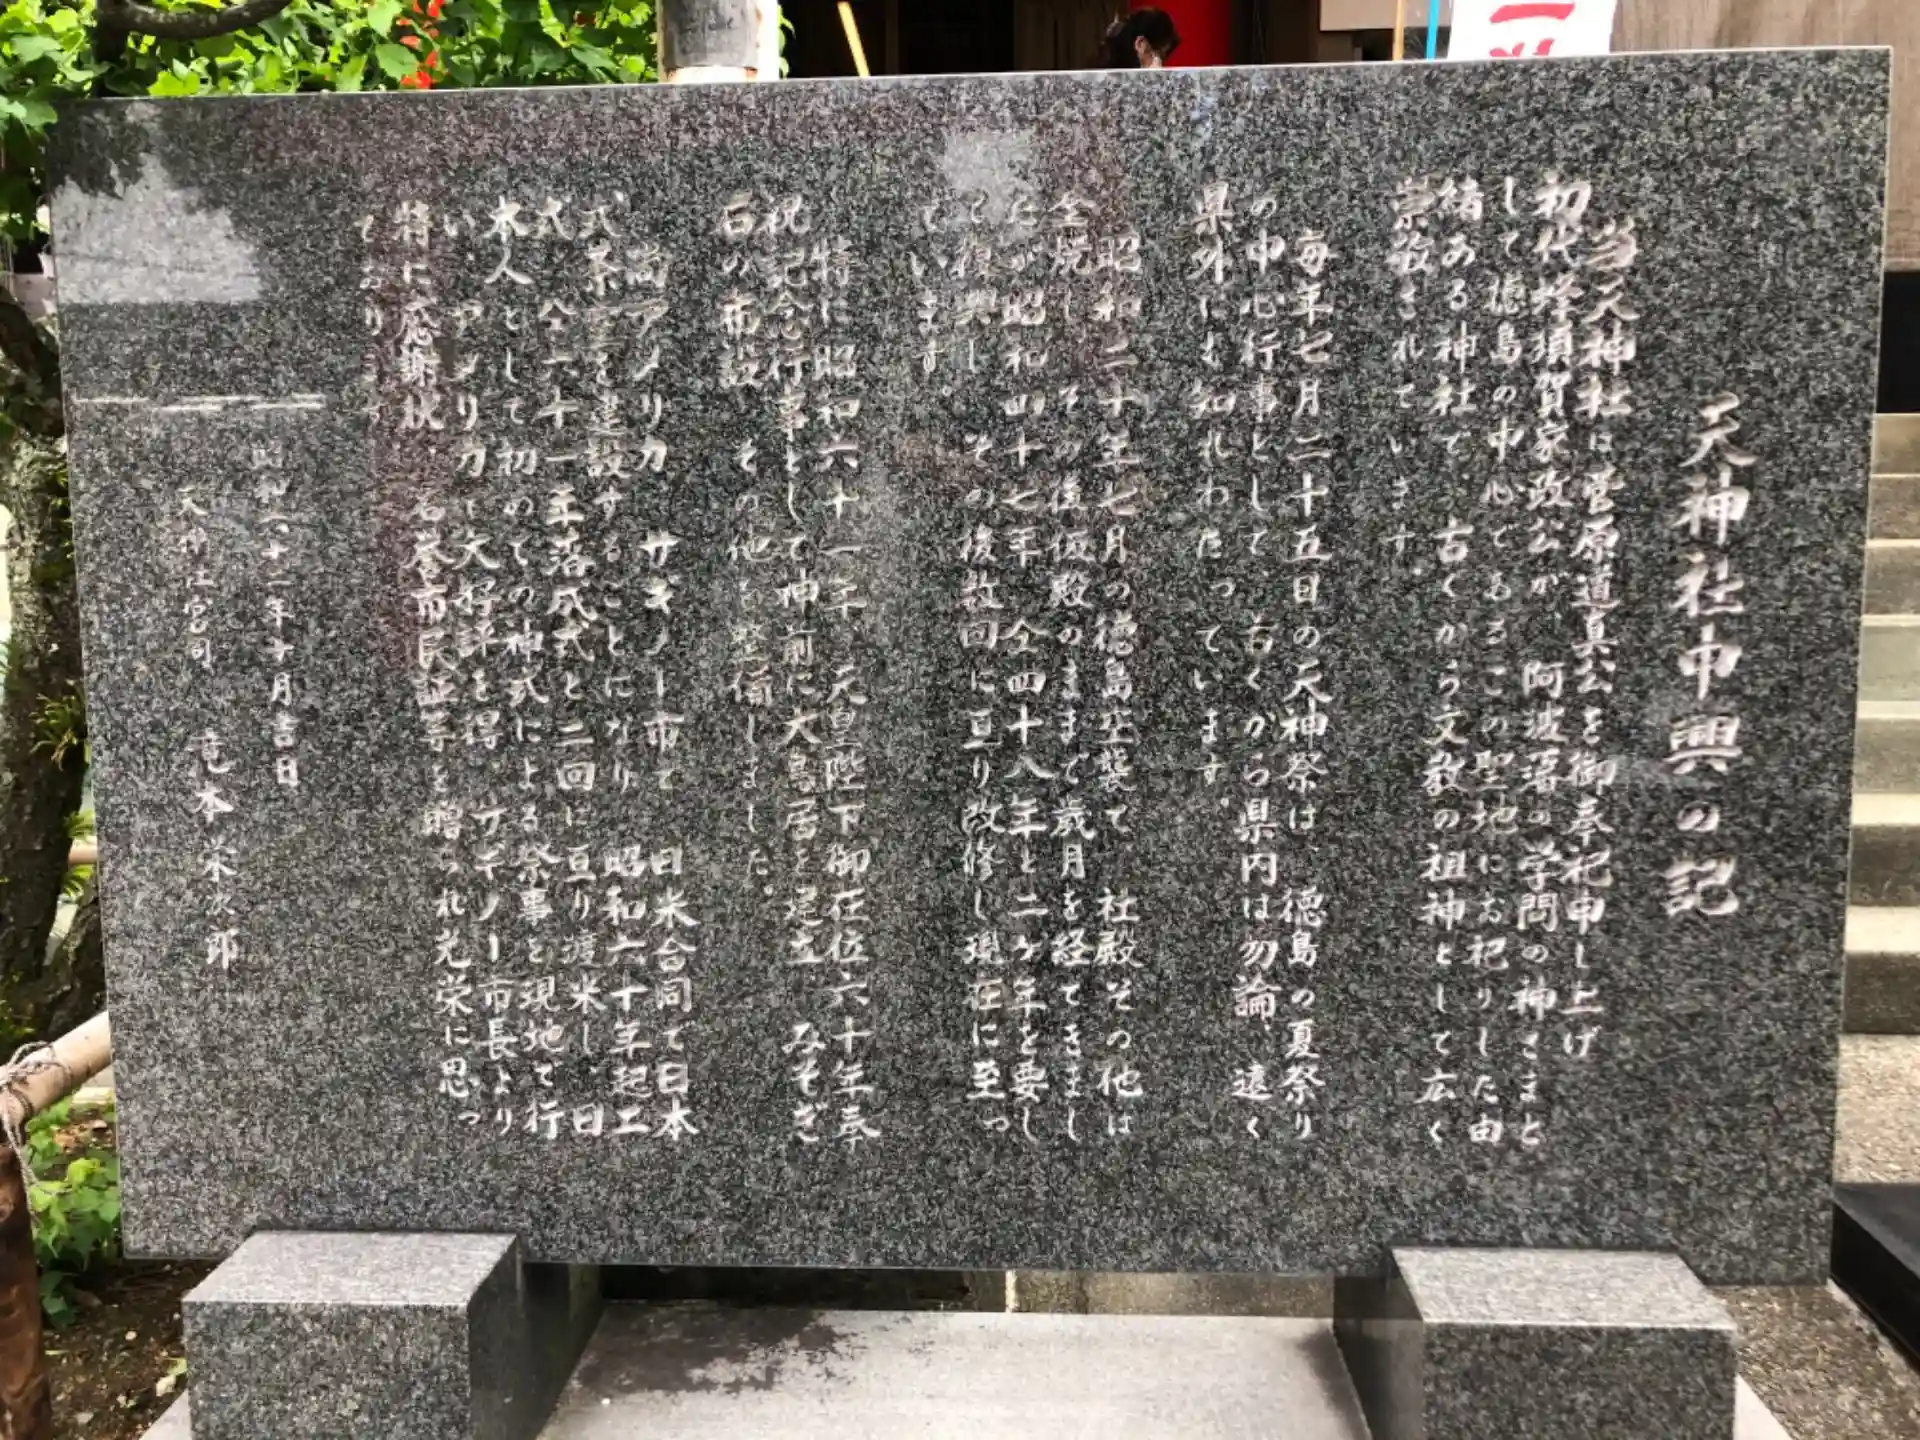 天神社中興の記
当天神社は菅原道真公を御奉祀申し上げ
初代蜂須賀家政公が、阿波藩の学問の神さまと
して徳島の中心であるこの聖地にお祀りした由
緒ある神社で、古くから文教の祖神として広く
崇敬されています。
毎年七月二十五日の天神祭は、徳島の夏祭り
の中心行事として、古くから県内は勿論、遠く
県外にも知れわたっています。
昭和二十年七月の徳島空襲で 社殿その他は
全焼し その後仮殿のままで歳月を経てきまし
たが昭和四十七年、仝四十八年と二ヶ年を要し
て復興し。その後数回に亘り改修し現在に至っ
ています。
特に昭和六十一年、天皇陛下御在位六十年奉
祝記念行事として神前に大鳥居を建立 みそぎ
石の布設 その他を整備しました。
尚アメリカ サギノー市で 日米合同で日本
式茶室を建設することになり 昭和六十年起工
式、仝六十一年落成式と二回に亘り渡米し、日
本人として初めての神式による祭事を現地で行
い、アメリカで大好評を得、サギノー市長より
特に感謝状、名誉市民証等を贈られ光栄に思っ
ております
昭和六十二年十月吉日
天神社宮司 竜本栄次郎